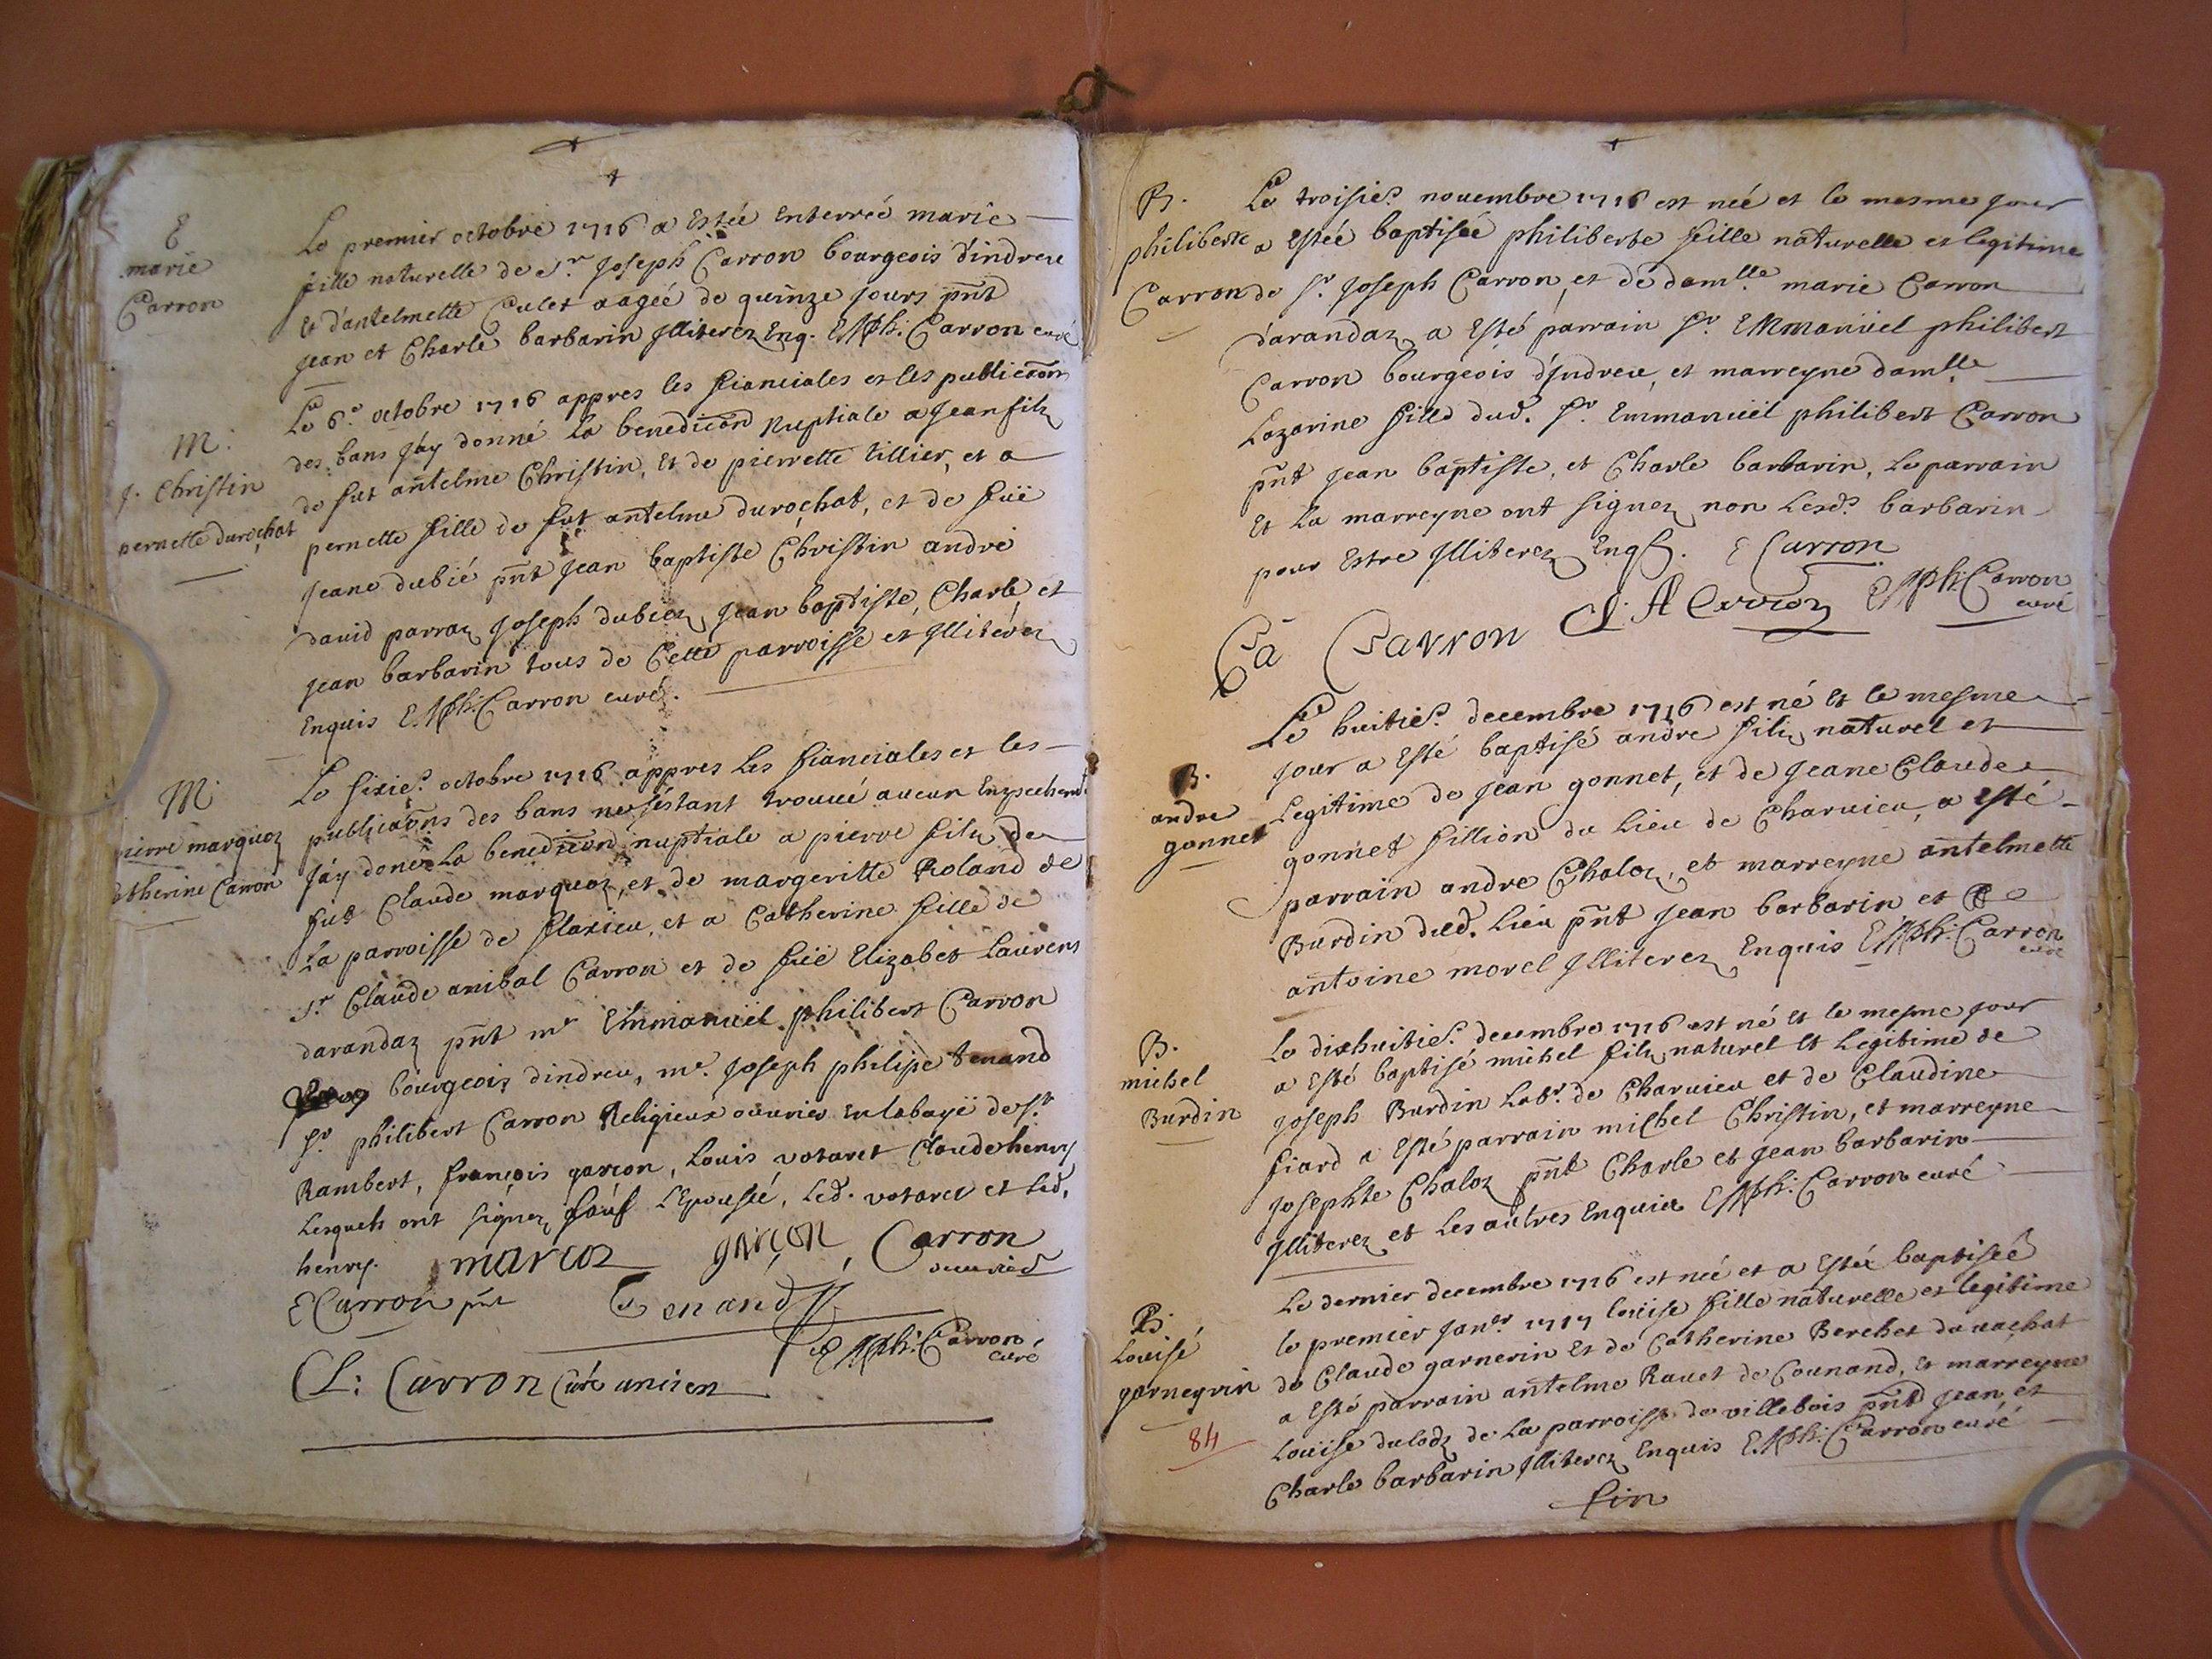 E
marie
Carron
Le premier octobre 1716 a Estée Enterreé marie
fille naturelle de Sr. Joseph Carron bourgeois d'indrieu
Et d'antelmette Culet aageé de quinze jours pnt
Jean et Charle barbarin Illiterez Enq. E Mph: Carron curé
M:
J. Christin
pernette durochat
Le 6e. octobre 1716 appres les fianciales et les publicaons
des bans J'ay donné la benedicaon Nuptiale a Jean filz
de fut antelme Christin, Et de pierrette tillier, et a
pernette fille de fut antelme durochat, et de fuë
Jeane dubié pnt Jean baptiste Christin andré
david parraz Joseph dubiez Jean baptiste, Charle et
Jean barbarin tous de Cette parroisse et Illiterez
Enquis E. Mph: Carron curé.
M
pierre marquoz
Catherine Carron
Le sixie. octobre 1716 appres les fianciales et les
publicaons des bans ne s'éstant trouué aucun
J'ay donez La benedicion nuptiale a pierre filz de
fut Claude marquoz, et de margeritte Roland de
La parroisse de flaxieu, et a Catherine fille de
Sr. Claude anibal Carron et de fuë Elizabet Laurens
darandaz pnt mr Emmanuël philibert Carron
bourgeois dindreu, mr. Joseph philipe tenand
Sr. philibert Carron Religieux ouurier En labayë de St.
Rambert, françois garçon, Louis votaret Claude henry
Lesquels ont signez sauf L'Epousée, Led. votaret et led.
henry. marcoz garçon, Carron ouurier
E Carron pnt Tenand
E Mph: Carron curé
Cl: Carron Curé ancien
B.
philiberte
Carron
Le troisie. nouembre 1716 est neé et le mesme jour
a Estée baptiseé philiberte fille naturelle et legitime
de Sr. Joseph Carron, et de damlle. marie Carron
d'arandaz a Esté parrain Sr. EMmanuël philibert
Carron bourgeois d'Indreu, et marreyne damlle
Lazarine fille dud. Sr. Emmanuël philibert Carron
pnt Jean baptiste, et Charle barbarin, Le parrain
Et La marreyne ont signez non Lesd. barbarin
pour Estre Illiterez Enqs. E Carron
Carron E Mph: Carron
curé
B.
andre
gonnet
Le huitie. decembre 1716 est né Et le mesme
jour a Esté baptisé andre filz naturel et
Legitime de Jean gonnet, et de Jeane Claude
gonnet fillion du Lieu de Charuieu, a Esté
parrain andre Chaloz, et marreyne antelmette
Burdin dud. Lieu pnt Jean barbarin et
antoine morel Illiterez Enquis E Mph: Carron
curé
B.
michel
Burdin
Le dixhuitie. decembre 1716 est né Et le mesme jour
a Esté baptisé michel filz naturel Et Legitime de
Joseph Burdin Labr. de Charuieu et de Claudine
fiard a Esté parrain michel Christin, et marreyne
Josephte Chaloz pnt Charle et Jean barbarin
Illiterez et Les autres Enquis E Mph: Carron curé
B.
Louise
garneyrin
84
Le dernier decembre 1716 est neé et a Esté baptiseé
le premier Janer 1717 louise fille naturelle et legitime
de Claude garnerin Et de Catherine Berchet du uachat
a Esté parrain antelme Rauet de Counand, Et marreyne
Louise dulodz de La parroisse de villebois pnt Jean, et
Charle barbarin Illiterez Enquis E. Mph: Carron curé
fin